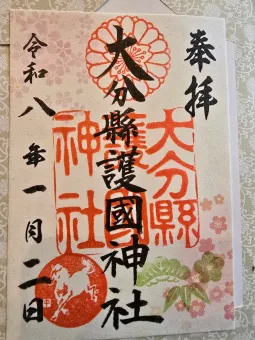 奉拝
大分縣護國神社
令和八年一月二日
大分縣
護國
神社